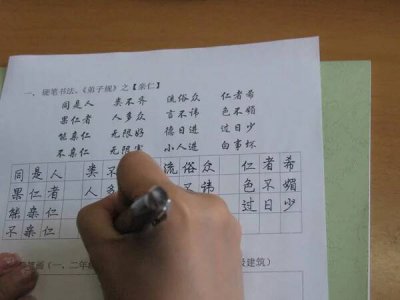 一、硬笔书法、《弟子规》之【亲仁】
同是人 类不齐 流俗众 仁者希
果仁者 人多 言不讳 色不媚
能亲仁 无限好 德日进 过日少
不亲仁 无限 小人进 百事坏
同是人 类不 流俗众 仁者希
果仁者 人多 不讳 色不媚
能亲仁 过日少
不亲仁
笔画（一、二年级 建筑）